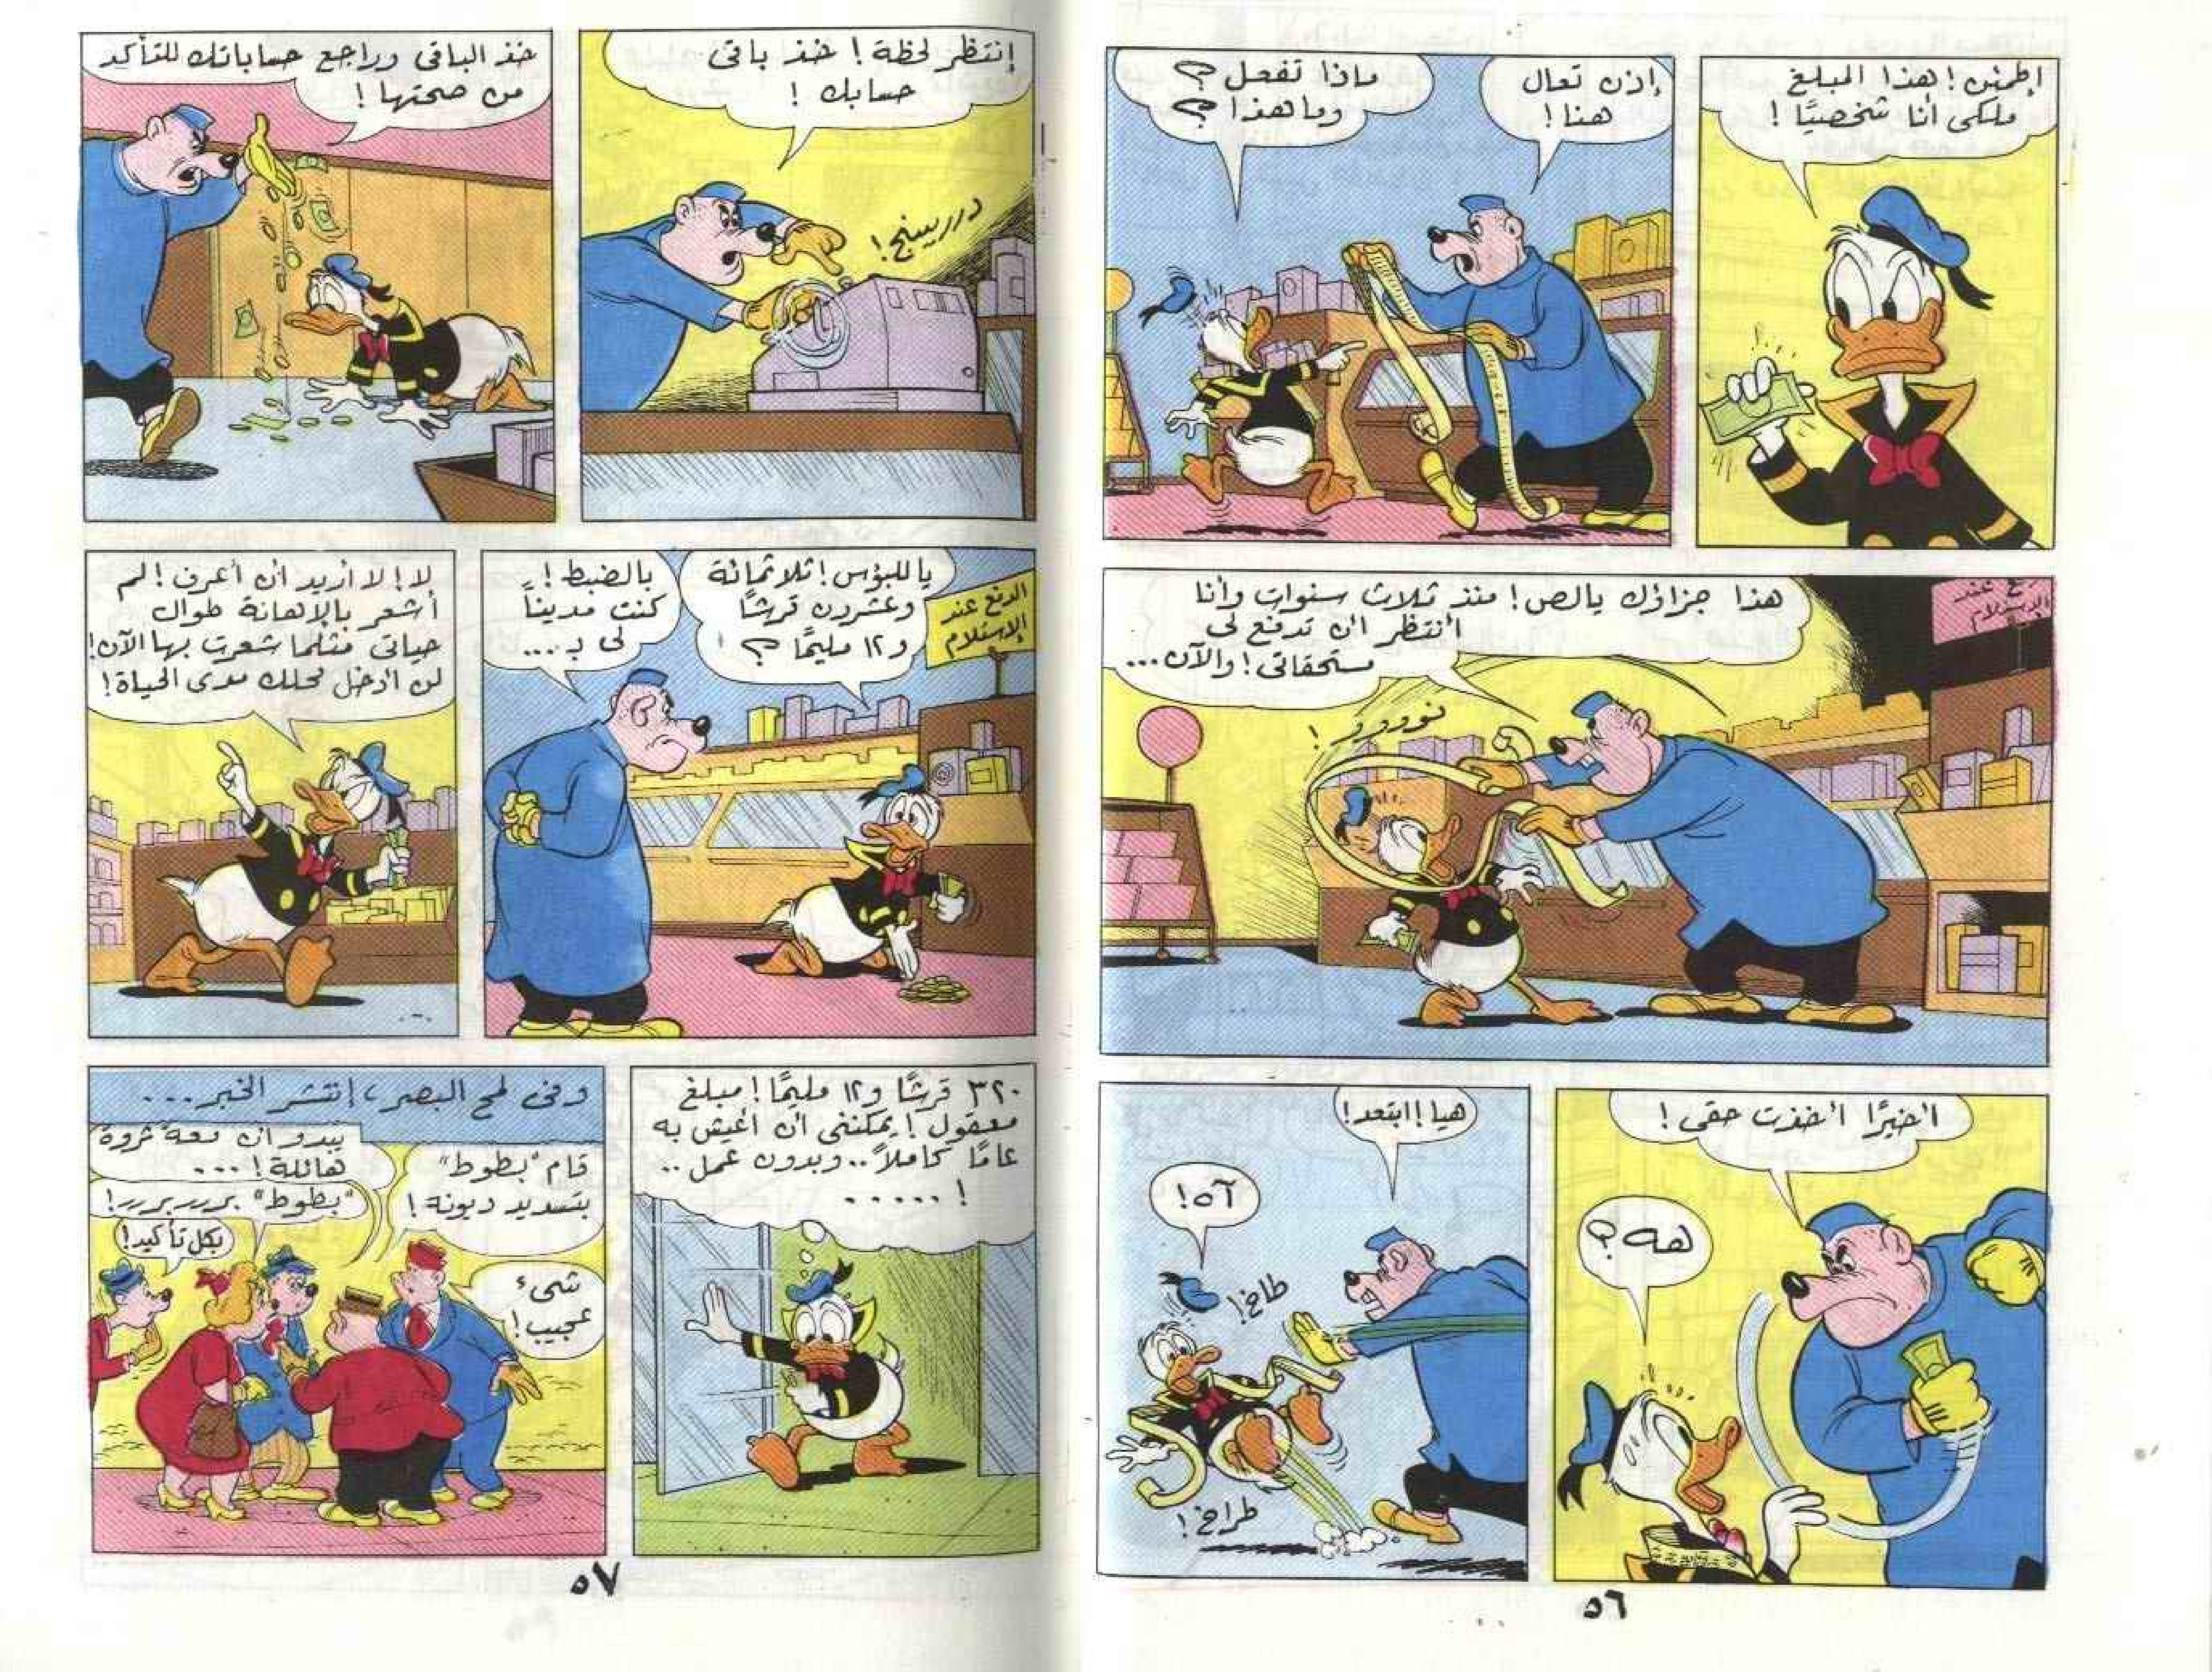 إطمئن! هذا المبلغ
ملكى أنا شخصيًا!
إذن تعال
هنا!
ماذا تفعل؟
وما هذا؟
هذا جزاؤك يا لص! منذ ثلاث سنوات وأنا
أنتظر أن تدفع لى
مستحقاتى! والآن...
نوووو!
ع عند
الإستلام
أخيرًا أخذت حقى!
هه؟
هيا! ابتعد!
آه!
طاخ!
طراخ!
٥٦
إنتظر لحظة! خذ باقى
حسابك!
دررييينج!
خذ الباقى وراجع حساباتك للتأكد
من صحتها!
الدفع عند
الإستلام
يا للبؤس! ثلاثمائة
وعشرون قرشًا
و١٢ مليمًا؟
بالضبط!
كنت مدينًا
لى بـ...
لا! لا أريد أن أعرف! لم
أشعر بالإهانة طوال
حياتى مثلما شعرت بها الآن!
لن أدخل محلك مدى الحياة!
٣٢٠ قرشًا و١٢ مليمًا! مبلغ
معقول! يمكننى أن أعيش به
عامًا كاملاً.. وبدون عمل..
.....!
وفى لمح البصر، إنتشر الخبر...
قام "بطوط"
بتسديد ديونة!
شىء
عجيب!
يبدو ان معة ثروة
هائلة!...
"بطوط" بررربررر!
بكل تأكيد!
٥٧